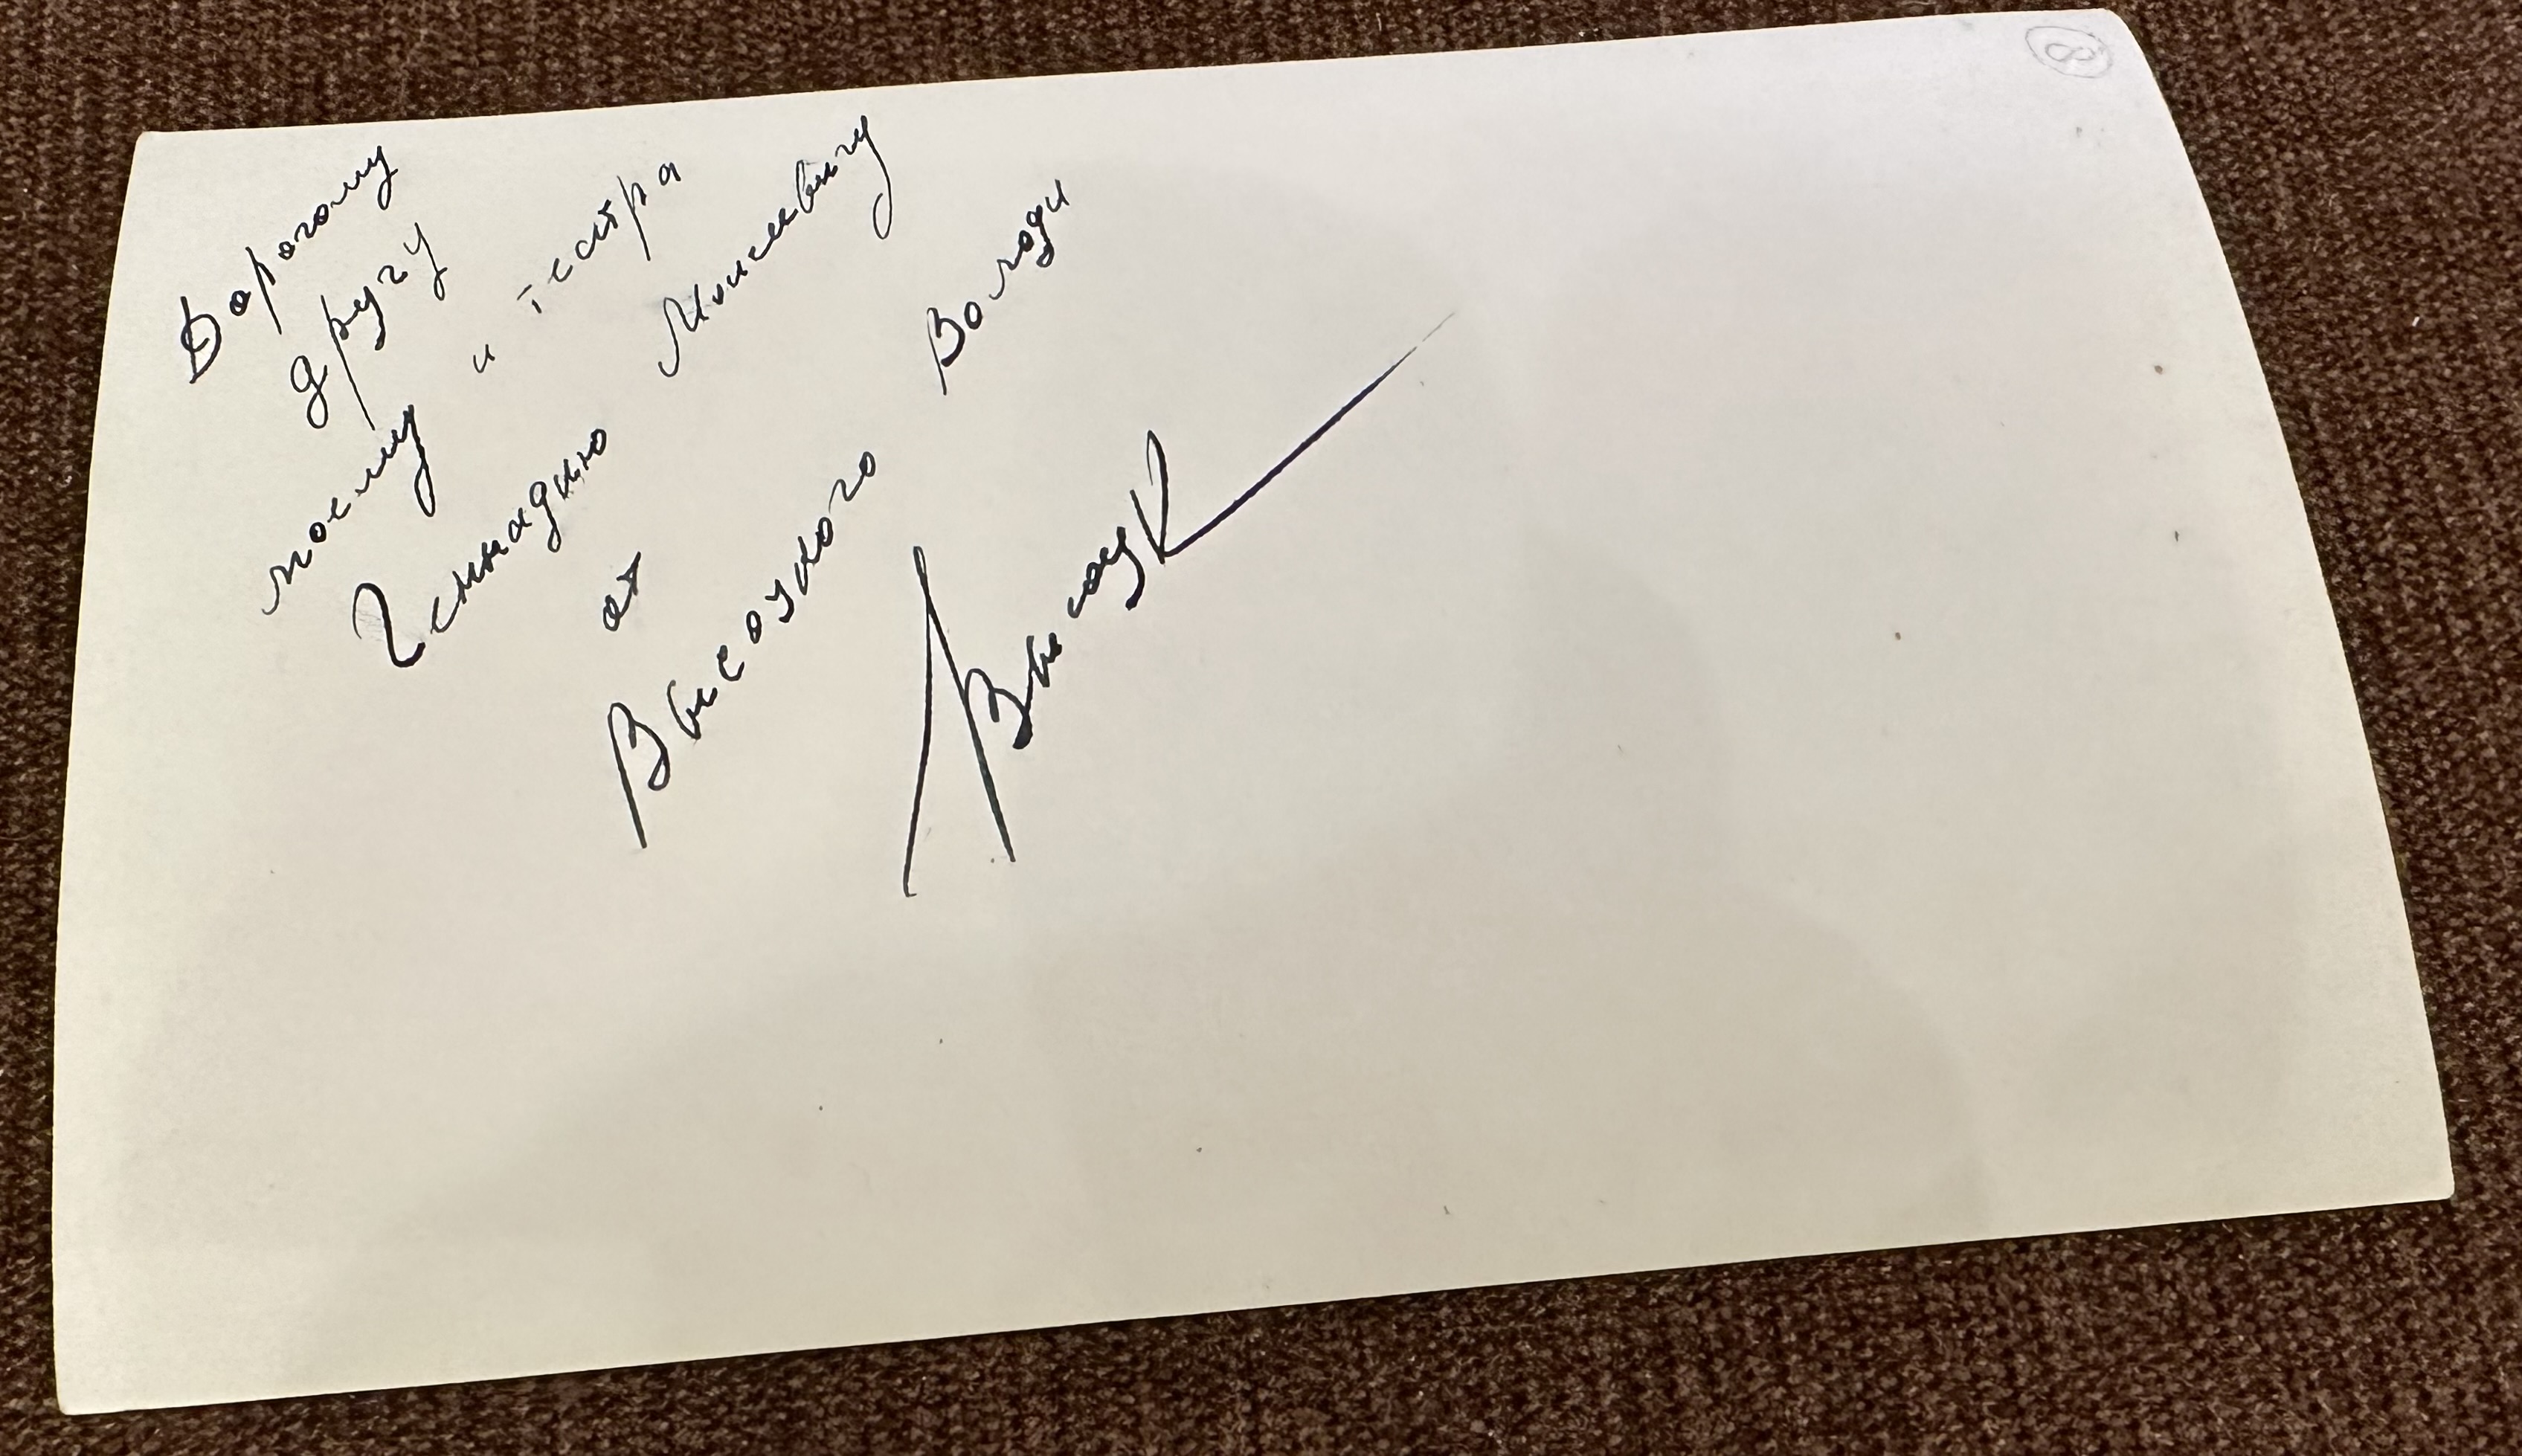 Дорогому
другу
моему и театра
Геннадию Моисеевичу
от
Высоцкого Володи
Высоцк
8